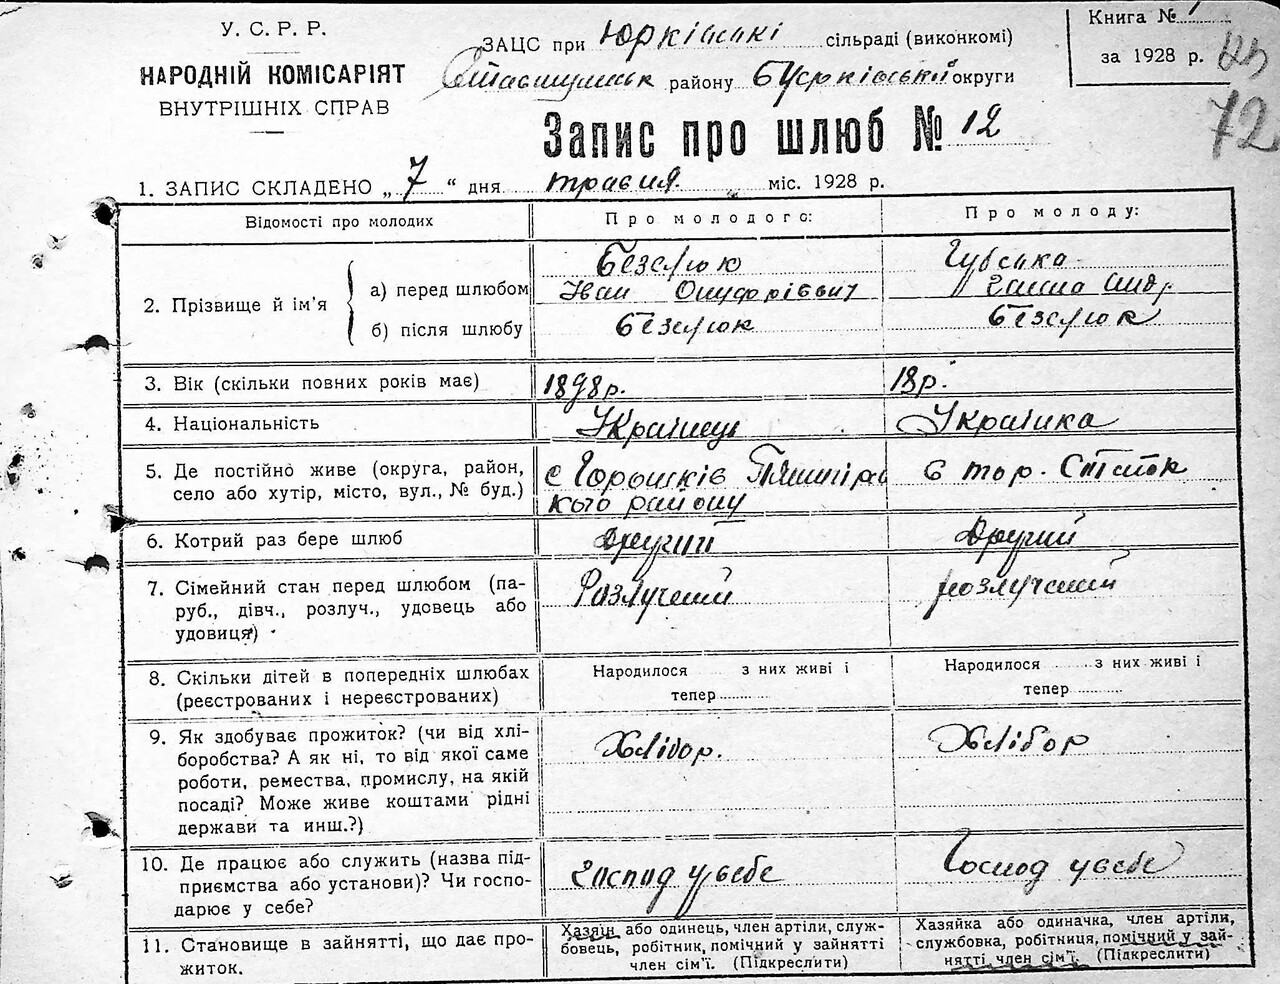 У. С. Р. Р.
НАРОДНІЙ КОМІСАРІЯТ
ВНУТРІШНІХ СПРАВ
ЗАЦС при Юрківські сільраді (виконкомі)
району округи
Книга №
за 1928 р.
72
Запис про шлюб № 12
1. ЗАПИС СКЛАДЕНО „ 7 “ дня травня міс. 1928 р.
Відомості про молодих
Про молодого:
Про молоду:
2. Прізвище й ім’я
а) перед шлюбом
б) після шлюбу
Безслюк
Іван Онуфрієвич
Безслюк
Губська
Ганна Андр.
Безслюк
3. Вік (скільки повних років має)
1898р.
18р.
4. Національність
Українець
Українка
5. Де постійно живе (округа, район,
село або хутір, місто, вул., № буд.)
с Горошків
кого району
6. Котрий раз бере шлюб
Другий
Другий
7. Сімейний стан перед шлюбом (па-
руб., дівч., розлуч., удовець або
удовиця)
Разлучений
розлучений
8. Скільки дітей в попередніх шлюбах
(реєстрованих і нереєстрованих)
Народилося з них живі і
тепер
Народилося з них живі і
тепер
9. Як здобуває прожиток? (чи від хлі-
боробства? А як ні, то від якої саме
роботи, ремества, промислу, на якій
посаді? Може живе коштами рідні
держави та инш.?)
Хлібор.
Хлібор
10. Де працює або служить (назва під-
приємства або установи)? Чи госпо-
дарює у себе?
Господ у себе
Господ у себе
11. Становище в зайнятті, що дає про-
житок.
Хазяїн або одинець, член артіли, служ-
бовець, робітник, помічний у зайнятті
член сім’ї. (Підкреслити)
Хазяйка або одиначка, член артіли,
службовка, робітниця, помічний у зай-
нятті член сім’ї. (Підкреслити)